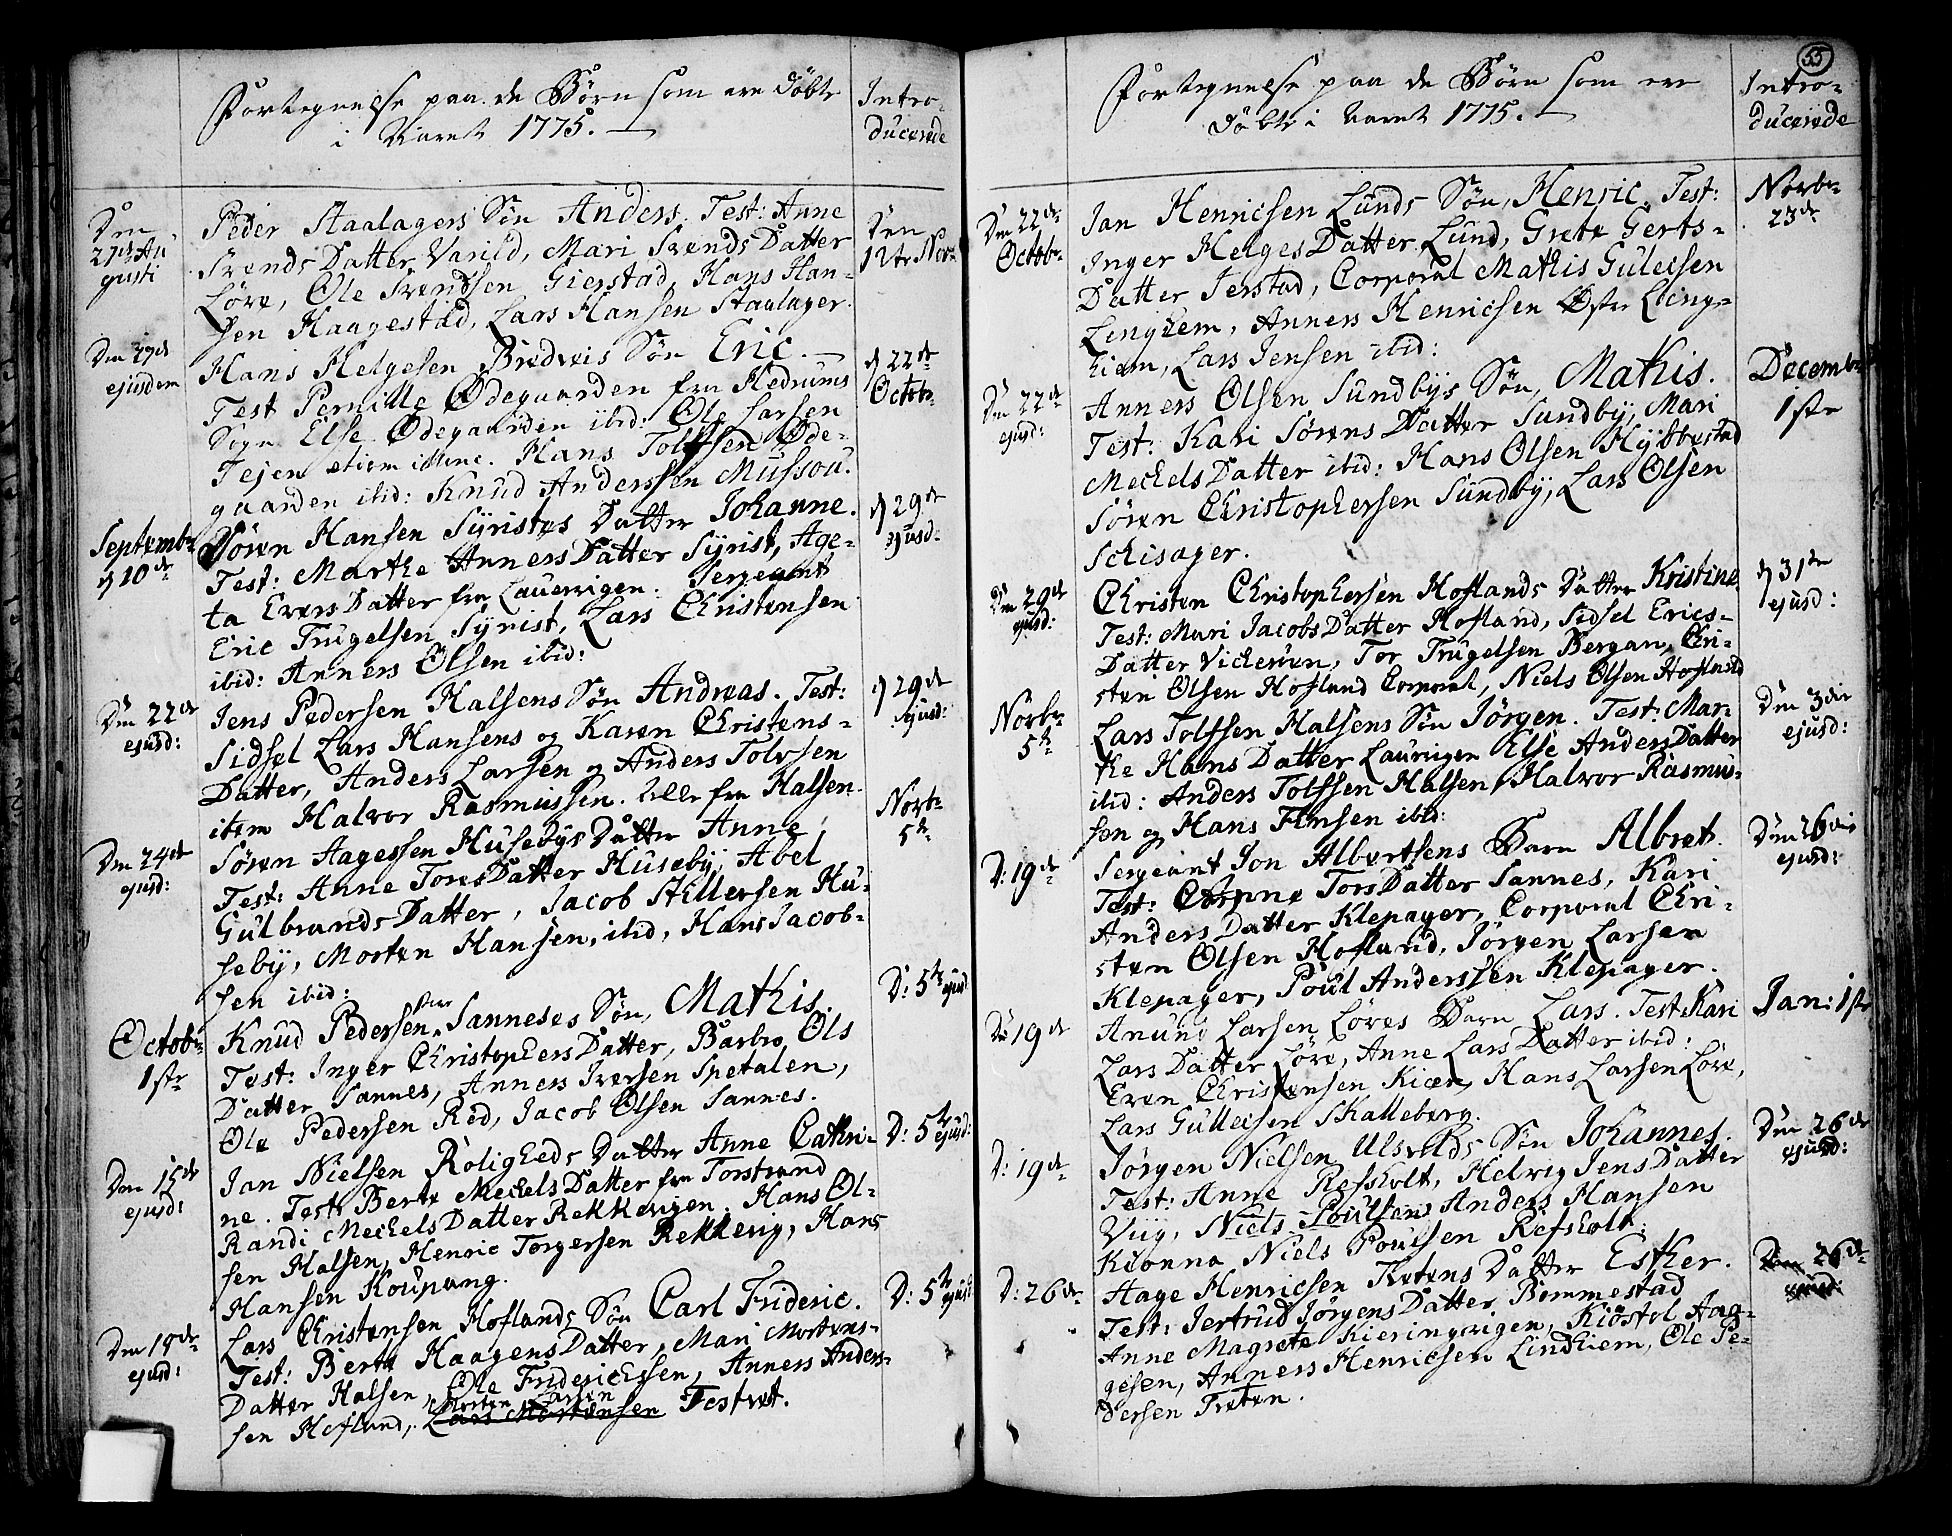 Fortegnelse paa de Börn som ere döbte
i Aaret 1775.
Intro-
ducerede
Den
27de Au
gusti
Peder Staalagers Sön Anders. Test: Anne
Svends Datter Varild, Mari Svends Datter
Löve, Ole Svendsen Gierstad, Hans Han-
sen Haagestad, Lars Hansen Staalager.
Den
12te Nov-
Den 27de
ejusdem
Hans Helgesen Bredveis Sön Eric.
Test Pernille Ödegaarden fra Hedrums
Sogn Else Ödegaarden ibid: Ole Larsen
Fejen etiam illinc. Hans Tolfsen Öde-
gaarden ibid: Knud Anderssen Mussou.
d 22de
Octobr
Septembr
d 10de
Sören Hansen Syristes Datter Johanne.
Test: Marthe Anners Datter Syrist, Age-
ta Evers Datter fra Lauervigen. Sergeant
Eric Trugelsen Syrist, Lars Christensen
ibid: Anners Olsen ibid:
d 29de
ejusd:
Den 22de
ejusd:
Jens Pedersen Halsens Sön Andreas. Test:
Sidsel Lars Hansens og Karen Christens-
Datter, Anders Larsen og Anders Tolvsen
item Halvor Rasmussen. Alle fra Halsen.
d 29de
ejusd:
Den 24de
ejusd:
Sören Aagessen Husebys Datter Anne,
Test: Anne Tores Datter Huseby, Abel
Gulbrands Datter, Jacob Hillersen Hu-
seby, Morten Hansen, ibid, Hans Jacob-
sen ibid:
Novbr
5te
Octobr
1ste
Knud Pedersen Sanneses Sön, Mathis.
Test: Inger Christophers Datter, Barbro Ols
Datter Sannes, Anners Iversen Spetalen,
Ole Pedersen Röd, Jacob Olsen Sannes.
D: 5te ejusd
Den 15de
ejusd:
Jan Nielsen Roligheds Datter Anne Cathri-
ne. Test: Berte Mechels Datter fra Torstrand
Randi Mechels Datter Rekkevigen. Hans Ol-
sen Halsen, Henric Torgersen Rekkevig, Hans
Hansen Koupang.
D: 5te ejusd:
Den 18de
ejusd:
Lars Christensen Hoflands Sön Carl Frideric.
Test: Berte Haagens Datter, Mari Mortens-
Datter Halsen, Ole Friderichsen, Anners Anders-
Morten Larsen
sen Hofland, Lars Mortensen Testvet.
D: 5te ejusd:
55
Fortegnelse paa de Börn som ere
döbte i Aaret 1775.
Intro-
ducerede
Den 22de
Octobr
Jan Henricsen Lunds Sön, Henric. Test:
Inger Helges Datter Lund, Grete Gerts-
Datter Jerstad, Corporal Mathis Gulecsen
Linghem, Anners Henricsen Östre Ling-
hiem, Lars Jensen ibid:
Novbr
23de
Den 22de
ejusd:
Anners Olsen Sundbys Sön, Mathis.
Test: Kari Sörens Datter Sundby, Mari
Mechels Datter ibid: Hans Olsen Hybbestad
Sören Christophersen Sundby, Lars Olsen
Schisager.
Decembr
1ste
Den 29de
ejusd:
Christen Christophersen Hoflands Datter Kristine.
Test: Mari Jacobs Datter Hofland, Sidsel Erics-
Datter Vichersen, Tor Trugelsen Bergan, Chri-
sten Olsen Hofland Corporal, Niels Olsen Hofland
d 31te
ejusd:
Novbr
5te
Lars Tolfsen Halsens Sön Jörgen. Test: Mar-
the Hans Datter Laurvigen Else Anders Datter
ibid: Anders Tolfssen Halsen, Halvor Rasmus-
sen og Hans Finsen ibid:
Den 3die
ejusd:
D: 19de
Sergeant Jon Albertsens Barn Albret.
Test: Anne Tors Datter Sannes, Kari
Anders Datter Klepager, Corporal Chri-
sten Olsen Hofland, Jörgen Larsen
Klepager, Poul Anderssen Klepager.
Den 26de
ejusd:
D: 19de
Anund Larsen Löves Barn Lars. Test: Kari
Lars Datter Löve, Anne Lars Datter ibid:
Even Christensen Kiær, Hans Larsen Löve,
Lars Gulleisen Skalleberg.
Jan: 1ste
D: 19de
Jörgen Nielsen Ulsvelds Sön Johannes.
Test: Anne Refsholt, Helvig Jens Datter
Viig, Niels Poulsens Anders Hansen
Kionna Niels Poulsen Refsholt.
Den 26de
ejusd:
D: 26de
Hage Henricsen Tretens Datter Esther.
Test: Jertrud Jörgens Datter Bommestad
Anne Magrete Kieringvigen, Kiöstol Aag-
gesen, Anners Henricsen Lindhiem, Ole Pe-
dersen Treten.
Den 26de
ejusd: